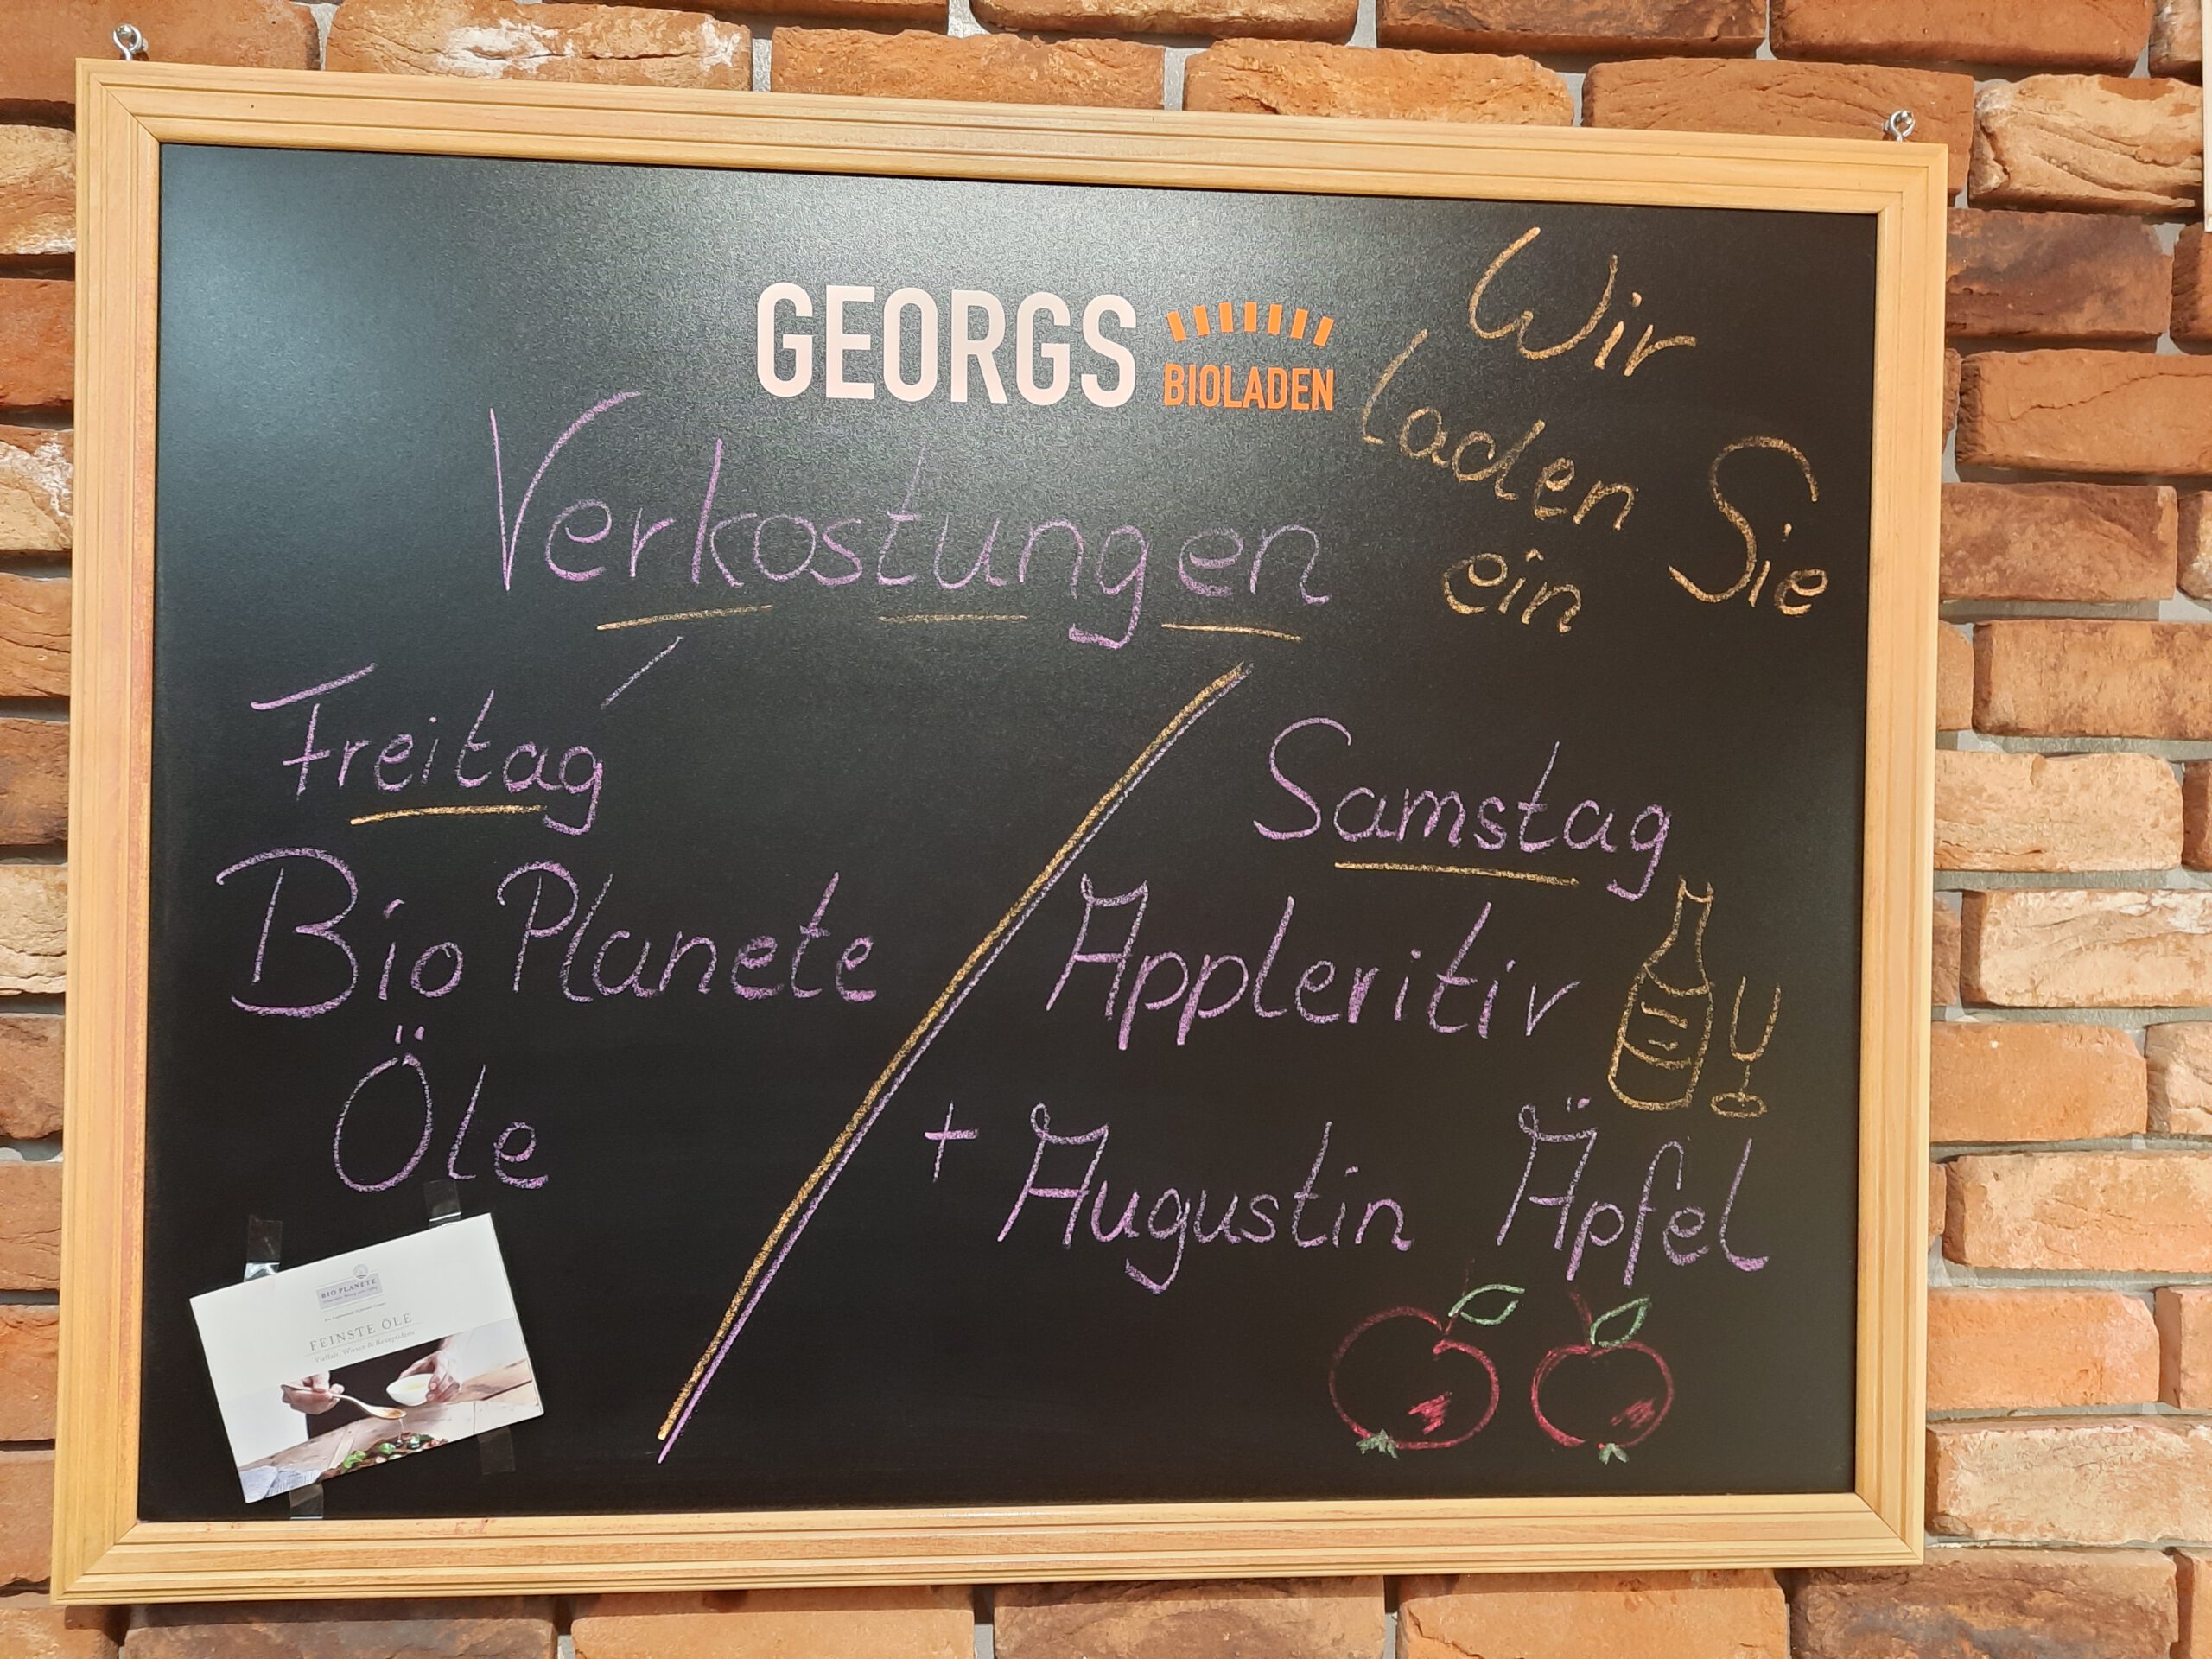 GEORGS BIOLADEN
Wir
laden Sie
ein
Verkostungen
Freitag
Bio Planete
Öle
Samstag
Appleritiv
+ Augustin Äpfel
BIO PLANETE
FEINSTE ÖLE
Vielfalt, Wissen & Rezeptideen